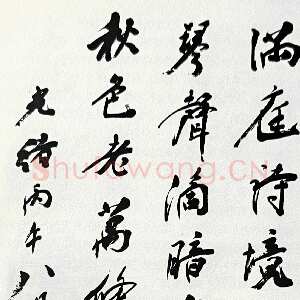 滿庭詩境
琴聲滴暗
秋色老萬
光緒丙午八
Shufawang.CN